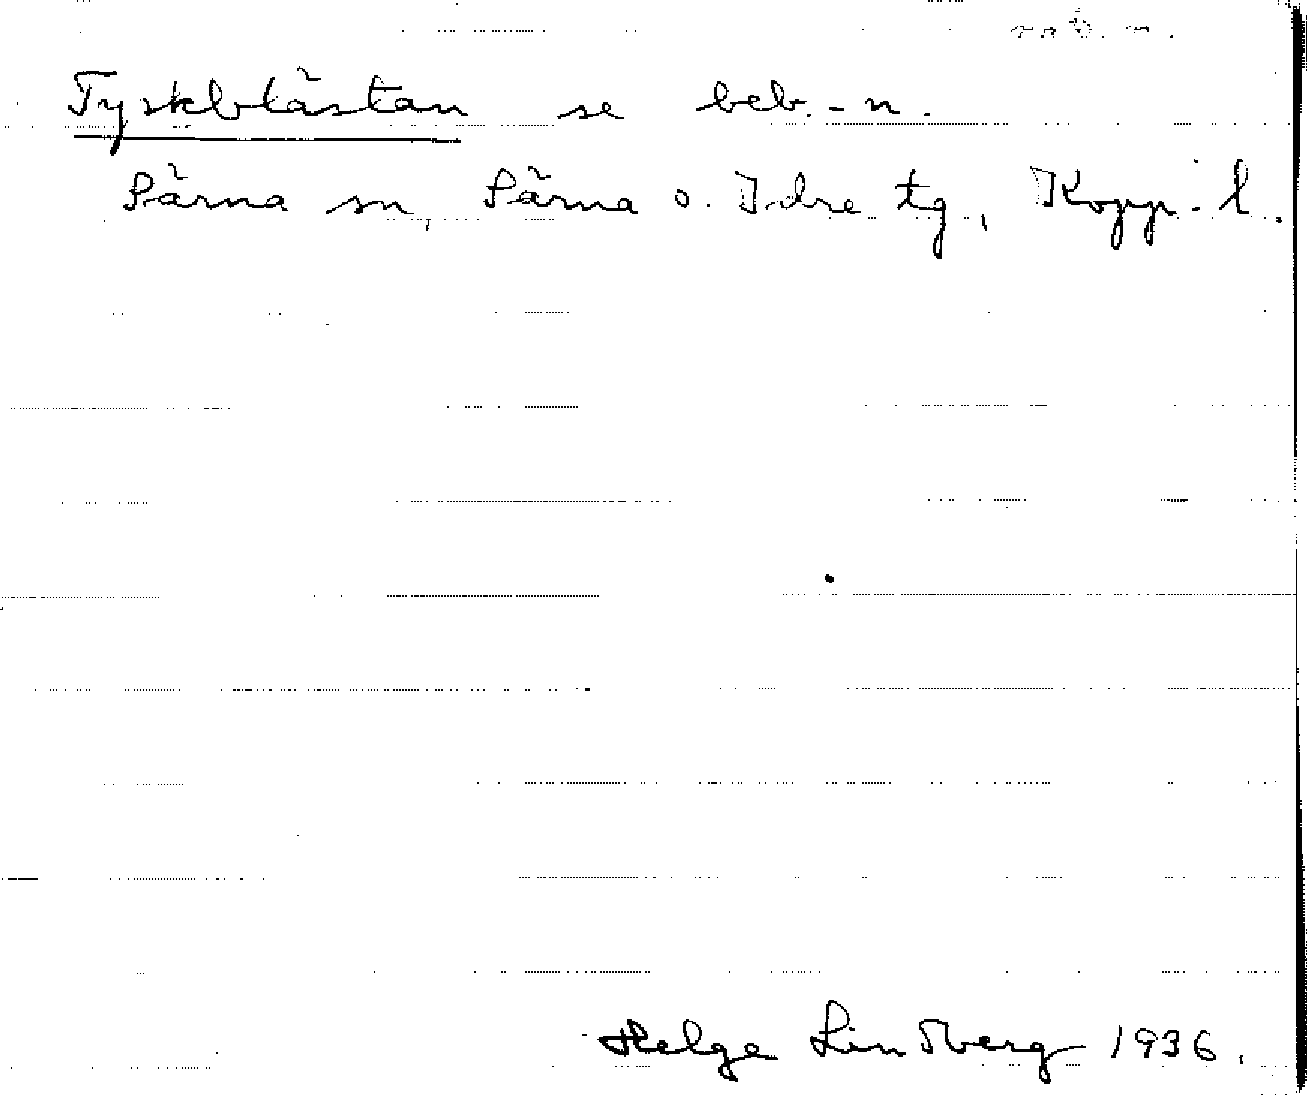 nat. n.
Tyskblästan se beb.-n.
Särna sn, Särna o. Idre tg, Kopp. l.
Helge Lindberg 1936.